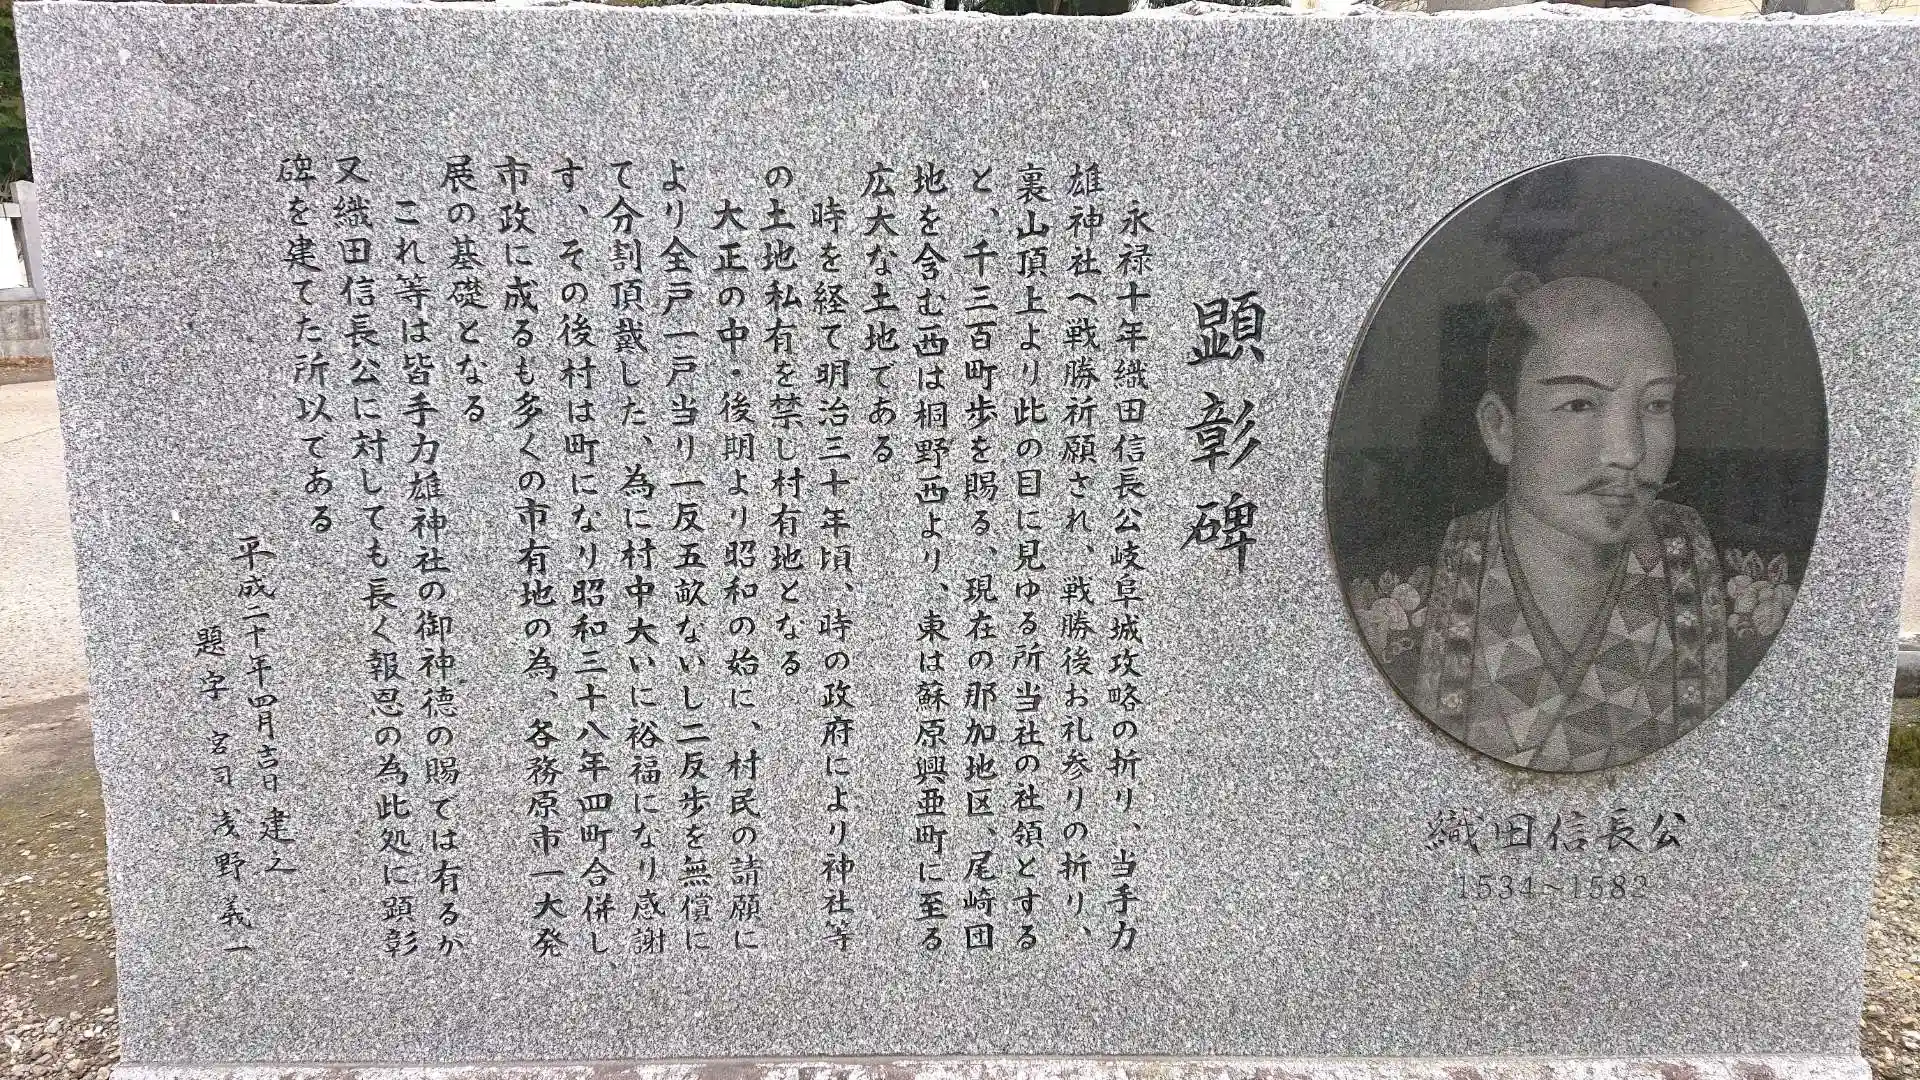 顕彰碑
永禄十年織田信長公岐阜城攻略の折り、当手力
雄神社へ戦勝祈願され、戦勝後お礼参りの折り、
裏山頂上より此の目に見ゆる所当社の社領とする
と、千三百町歩を賜る、現在の那加地区、尾崎団
地を含む西は桐野西より、東は蘇原興亜町に至る
広大な土地である。
時を経て明治三十年頃、時の政府により神社等
の土地私有を禁し村有地となる。
大正の中・後期より昭和の始に、村民の請願に
より全戸一戸当り一反五畝ないし二反歩を無償に
て分割頂戴した、為に村中大いに裕福になり感謝
す、その後村は町になり昭和三十八年四町合併し、
市政に成るも多くの市有地の為、各務原市一大発
展の基礎となる。
これ等は皆手力雄神社の御神徳の賜ては有るか
又織田信長公に対しても長く報恩の為此処に顕彰
碑を建てた所以である
平成二十年四月吉日 建之
題字 宮司 浅野義一
織田信長公
1534~1582